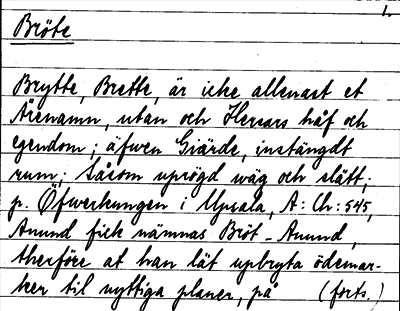 1.
Bröte
Brytte, Brette, är icke allenast et
Årenamn, utan och Hersars håf och
egendom; äfwen Giärde, instängdt
rum; såsom uprögd wäg och slätt;
p. Öfwerkungen i Upsala, A: Ch: 545,
Anund fick nämnas Bröt-Anund,
therföre at han lät upbryta ödemar-
ker til nyttiga planer, på (forts.)